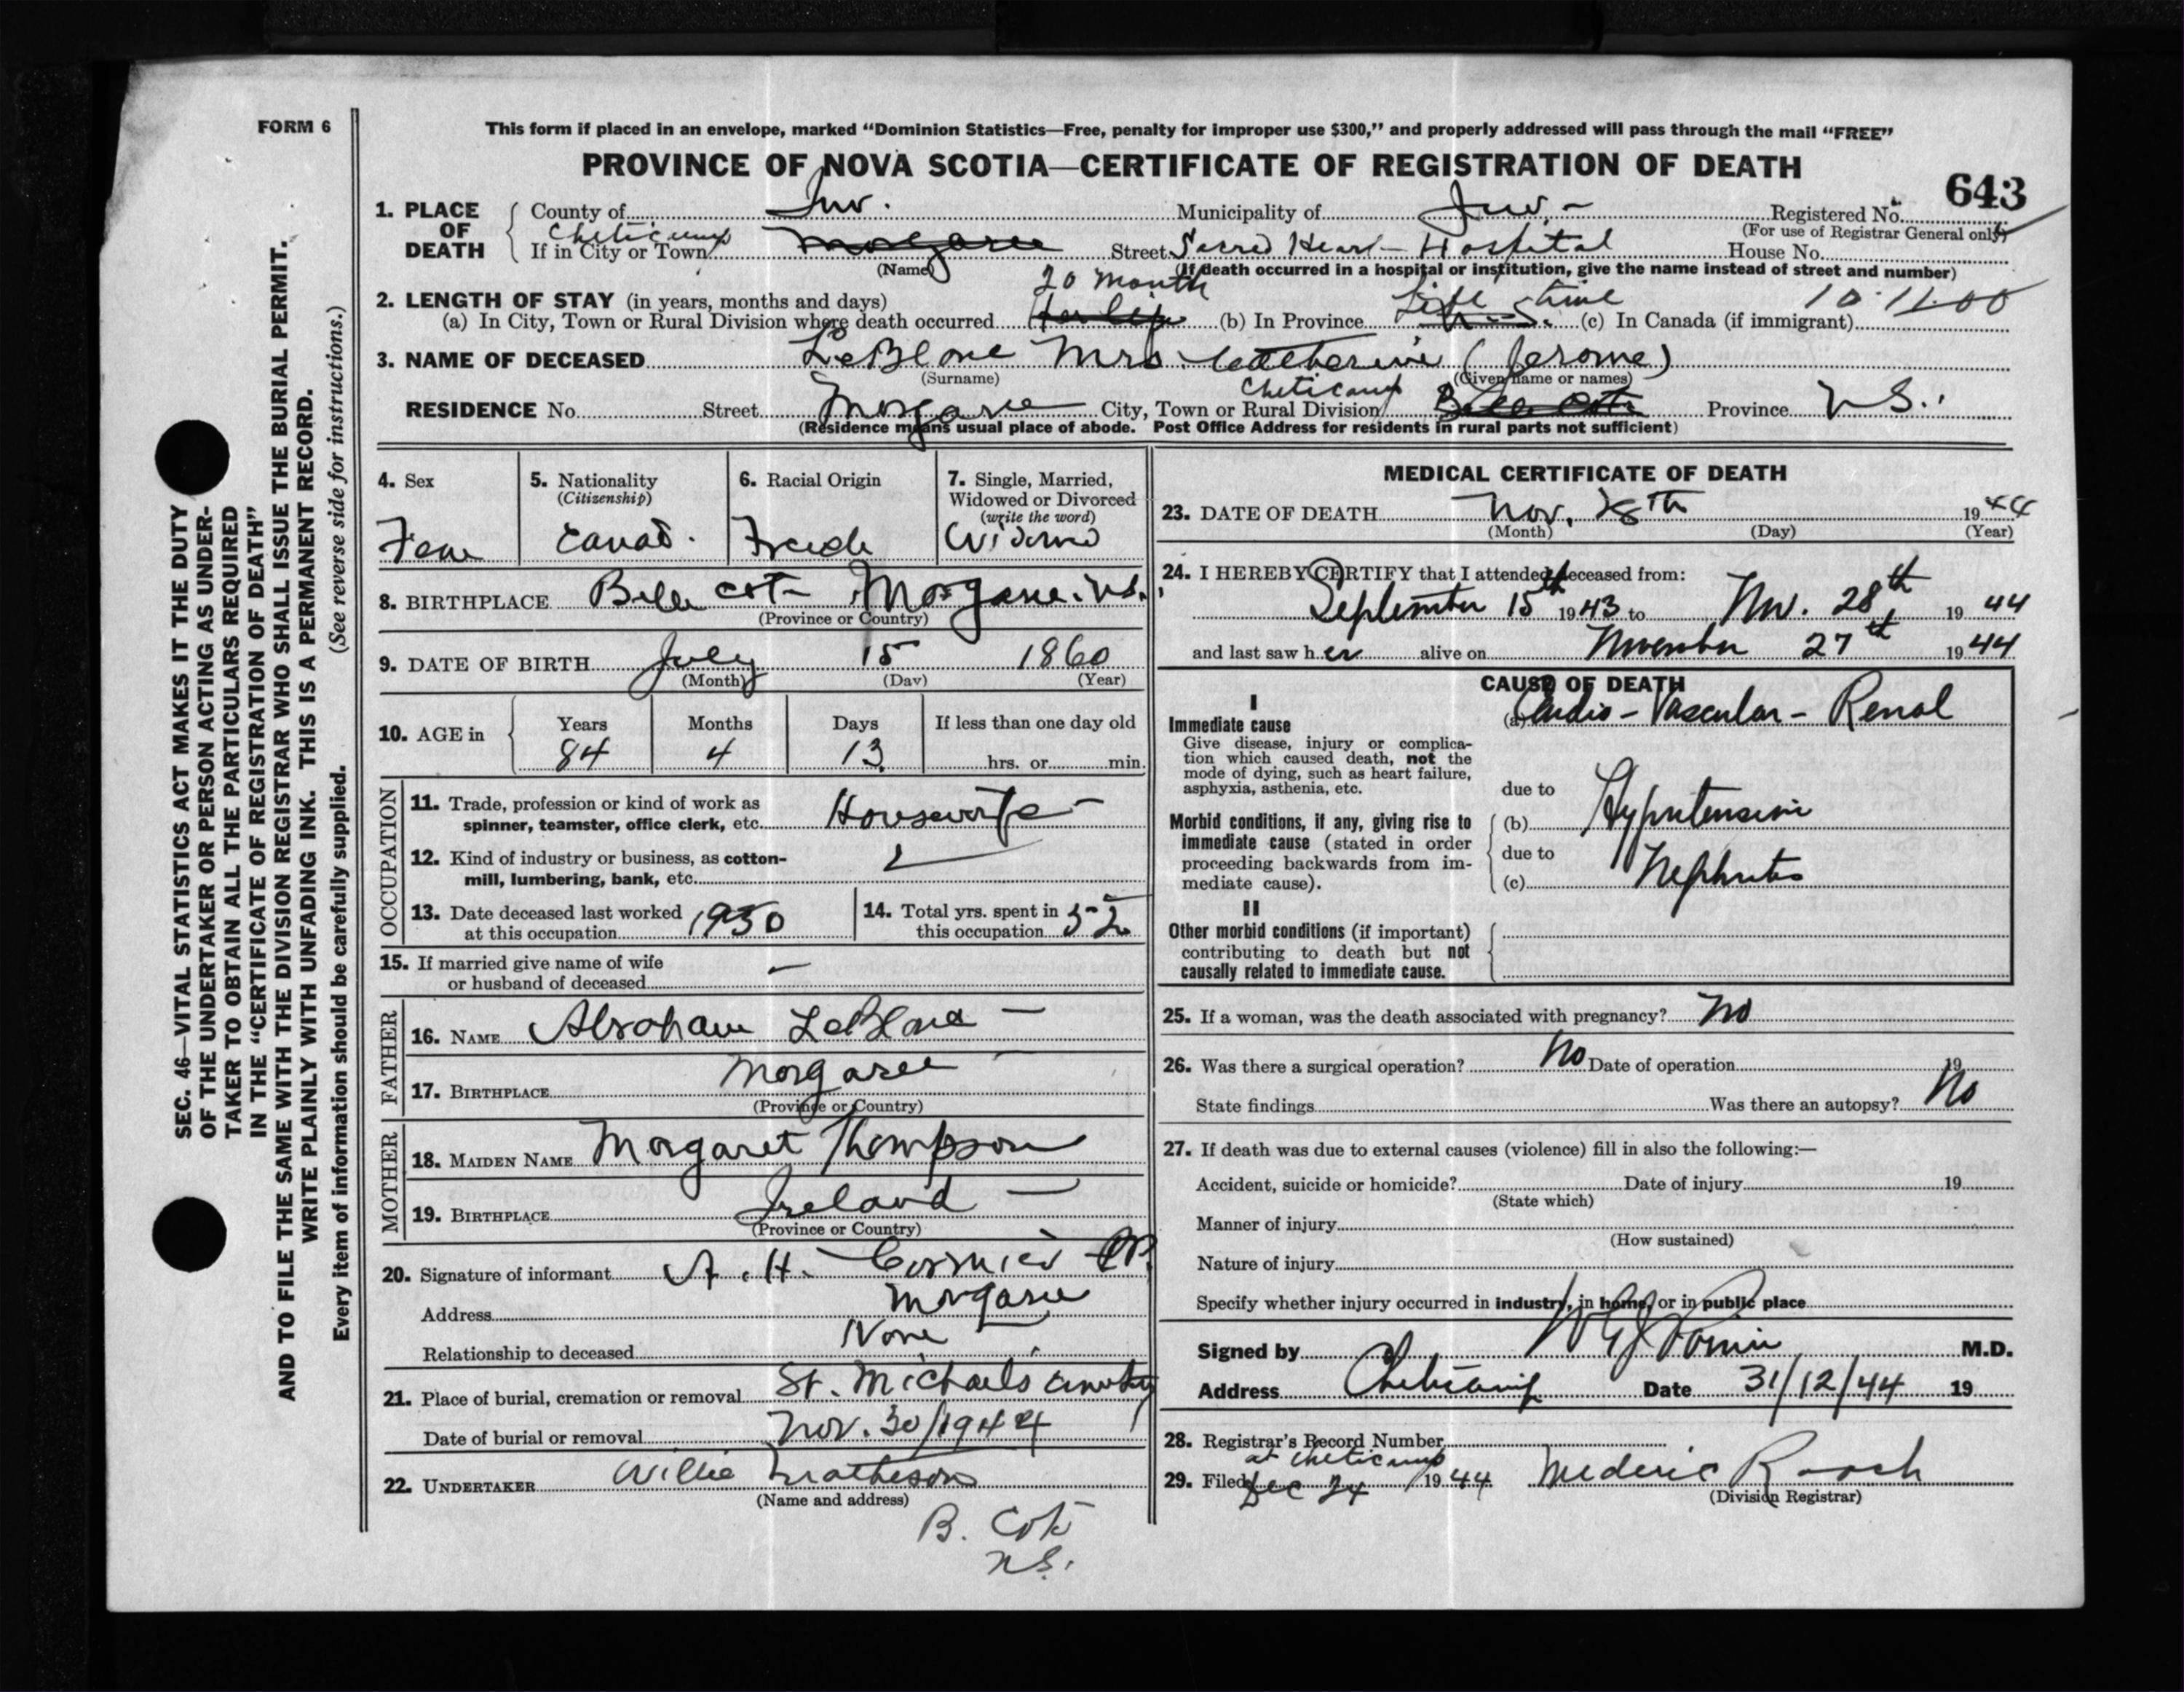 FORM 6
This form if placed in an envelope, marked "Dominion Statistics—Free, penalty for improper use $300," and properly addressed will pass through the mail "FREE"
PROVINCE OF NOVA SCOTIA—CERTIFICATE OF REGISTRATION OF DEATH
643
SEC. 46—VITAL STATISTICS ACT MAKES IT THE DUTY
OF THE UNDERTAKER OR PERSON ACTING AS UNDER-
TAKER TO OBTAIN ALL THE PARTICULARS REQUIRED
IN THE "CERTIFICATE OF REGISTRATION OF DEATH"
AND TO FILE THE SAME WITH THE DIVISION REGISTRAR WHO SHALL ISSUE THE BURIAL PERMIT.
WRITE PLAINLY WITH UNFADING INK. THIS IS A PERMANENT RECORD.
Every item of information should be carefully supplied. (See reverse side for instructions.)
1. PLACE OF DEATH
County of Inv. Municipality of Inv. - Registered No.
(For use of Registrar General only)
If in City or Town Cheticamp Margaree Street Sacred Heart - Hospital House No.
(Name) (If death occurred in a hospital or institution, give the name instead of street and number)
2. LENGTH OF STAY (in years, months and days) 20 month Life time 10-11-00
(a) In City, Town or Rural Division where death occurred (b) In Province N.S. (c) In Canada (if immigrant)
3. NAME OF DECEASED LeBlanc Mrs. Catherine (Jerome)
(Surname) (Given name or names)
Cheticamp
RESIDENCE No. Street Margaree City, Town or Rural Division Belle Cote Province N.S.
(Residence means usual place of abode. Post Office Address for residents in rural parts not sufficient)
4. Sex
Fem
5. Nationality
(Citizenship)
Canad.
6. Racial Origin
French
7. Single, Married,
Widowed or Divorced
(write the word)
Widow
8. BIRTHPLACE Belle Cote Margaree. N.S.
(Province or Country)
9. DATE OF BIRTH July 15 1860
(Month) (Day) (Year)
10. AGE in Years Months Days If less than one day old
84 4 13 hrs. or min.
OCCUPATION
11. Trade, profession or kind of work as
spinner, teamster, office clerk, etc. Housewife -
12. Kind of industry or business, as cotton-
mill, lumbering, bank, etc.
13. Date deceased last worked
at this occupation 1930
14. Total yrs. spent in
this occupation 52
15. If married give name of wife
or husband of deceased —
FATHER
16. NAME Abraham LeBlanc —
17. BIRTHPLACE Margaree —
(Province or Country)
MOTHER
18. MAIDEN NAME Margaret Thompson
19. BIRTHPLACE Ireland —
(Province or Country)
20. Signature of informant A. H. Cormier
Address Margaree
Relationship to deceased None
21. Place of burial, cremation or removal St. Michaels Cemetery
Date of burial or removal Nov. 30/1944
22. UNDERTAKER Willie Matheson
(Name and address)
B. Cote
N.S.
MEDICAL CERTIFICATE OF DEATH
23. DATE OF DEATH Nov. 28th 1944
(Month) (Day) (Year)
24. I HEREBY CERTIFY that I attended deceased from:
September 15th 1943 to Nov. 28th 1944
and last saw her alive on November 27th 1944
CAUSE OF DEATH
I
Immediate cause
Give disease, injury or complica-
tion which caused death, not the
mode of dying, such as heart failure,
asphyxia, asthenia, etc.
(a) Cardio - Vascular - Renal
due to
Morbid conditions, if any, giving rise to
immediate cause (stated in order
proceeding backwards from im-
mediate cause).
(b) Hypertension
due to
(c) Nephritis
II
Other morbid conditions (if important)
contributing to death but not
causally related to immediate cause.
25. If a woman, was the death associated with pregnancy? No
26. Was there a surgical operation? No Date of operation 19
State findings Was there an autopsy? No
27. If death was due to external causes (violence) fill in also the following:—
Accident, suicide or homicide? Date of injury 19
(State which)
Manner of injury
(How sustained)
Nature of injury
Specify whether injury occurred in industry, in home, or in public place
Signed by M.D.
Address Cheticamp Date 31/12/44 19
28. Registrar's Record Number
at Cheticamp
29. Filed Dec 24 1944 Mederic Roach
(Division Registrar)